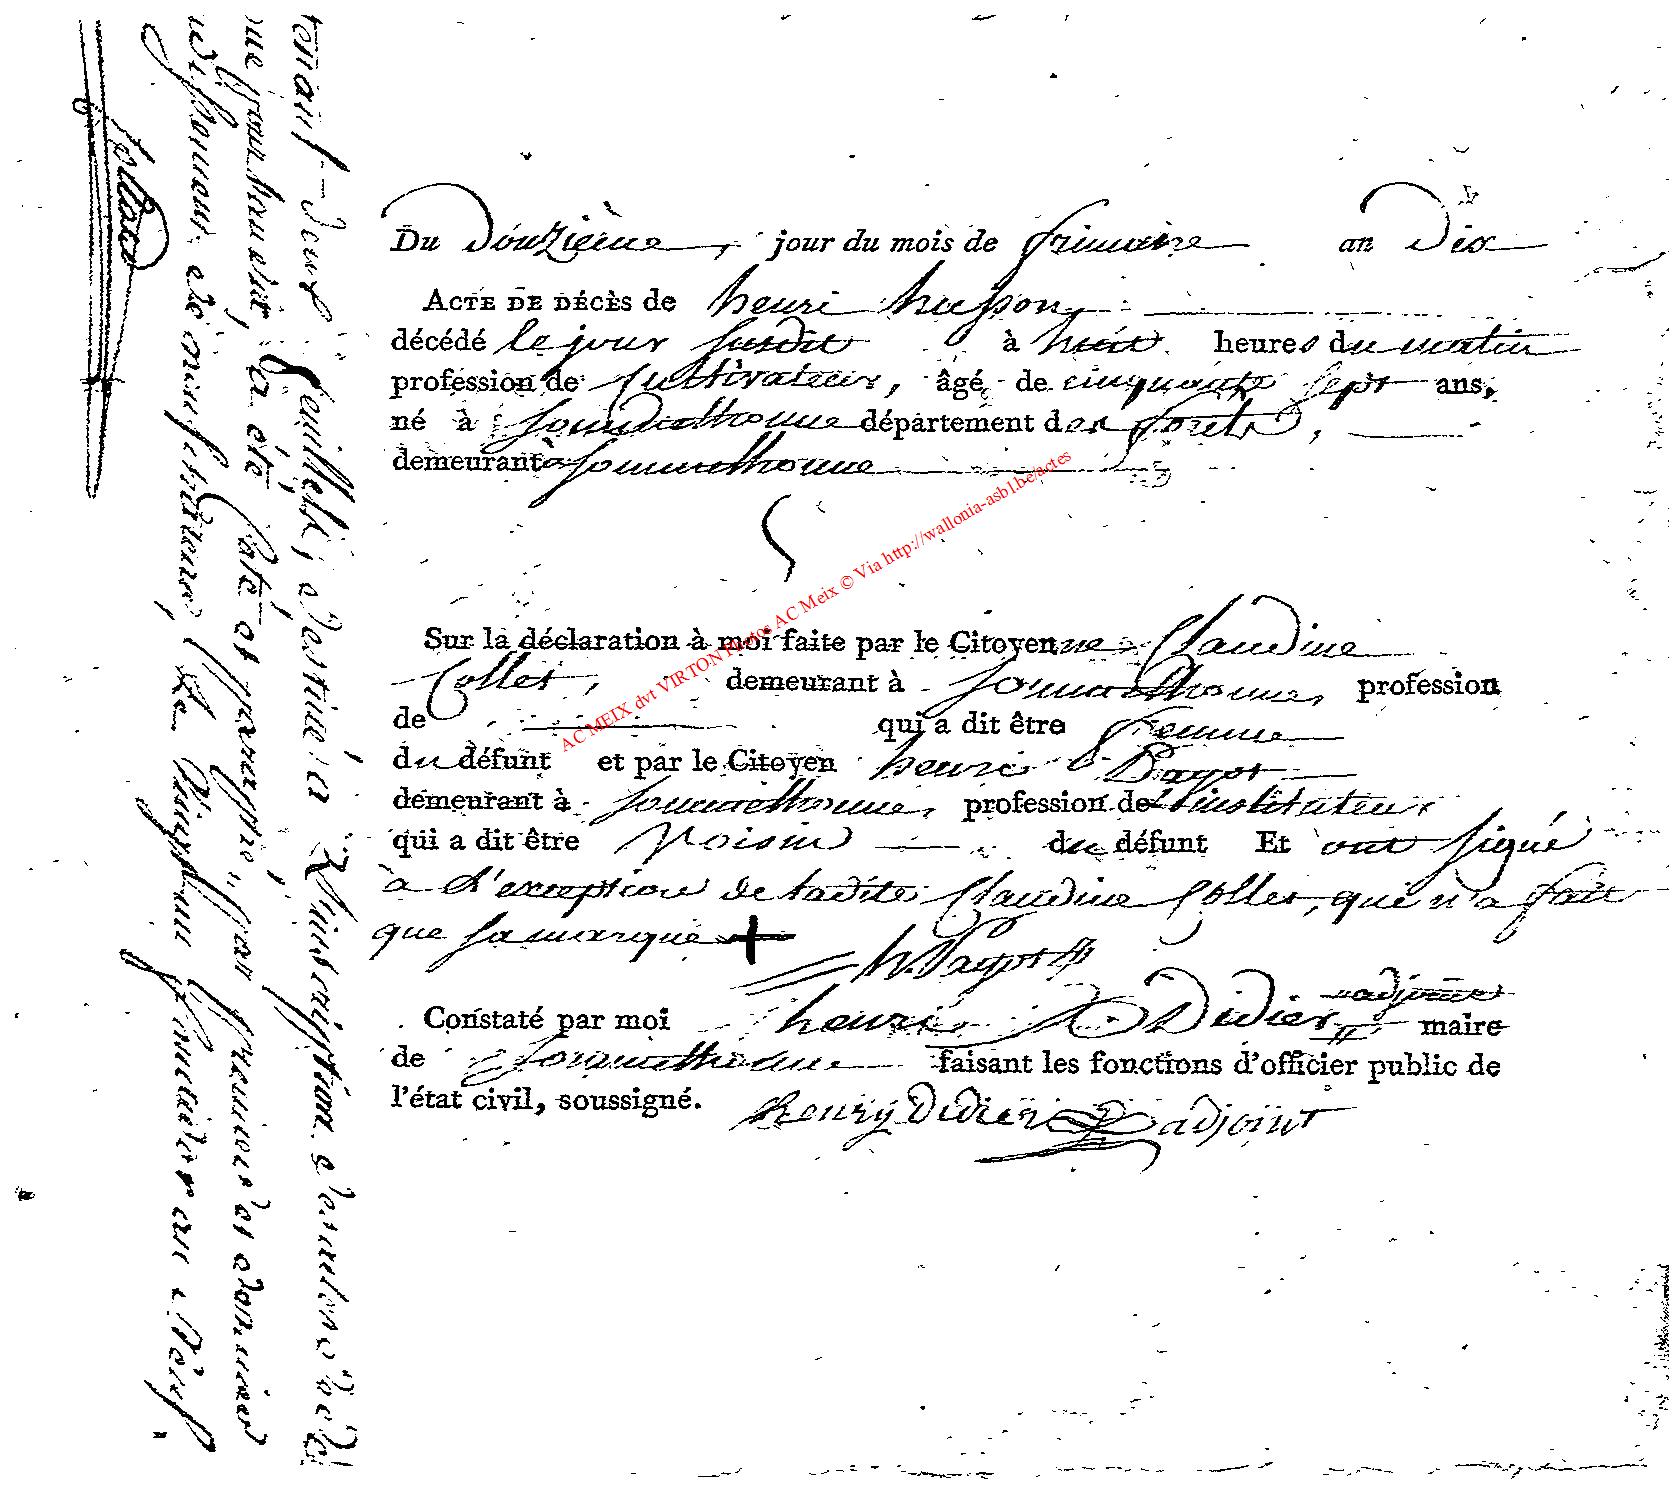 Du Douzième jour du mois de frimaire an Dix
ACTE DE DÉCÈS de henri husson
décédé le jour susdit à huit heures du matin
profession de Cultivateur, âgé de cinquante sept ans,
né à Sommethonne département des forets,
demeurant à Sommethonne
Sur la déclaration à moi faite par le Citoyenne Claudine
Collet, demeurant à Sommethonne, profession
de qui a dit être femme
du défunt et par le Citoyen henri Payot
demeurant à Sommethonne, profession de l'instituteur
qui a dit être Voisin du défunt Et ont signé
à l'exception de ladite Claudine Collet, qui n'a fait
que sa marque +
h. Payot
adjoint
Constaté par moi henri Didier maire
de Sommethonne faisant les fonctions d'officier public de
l'état civil, soussigné. henry Didier adjoint
AC MEIX dvt VIRTON Photos AC Meix © Via http://wallonia-asbl.be/actes
feuillets, destiné à l'inscription des actes de
a été coté et paraphé, par premier et dernier